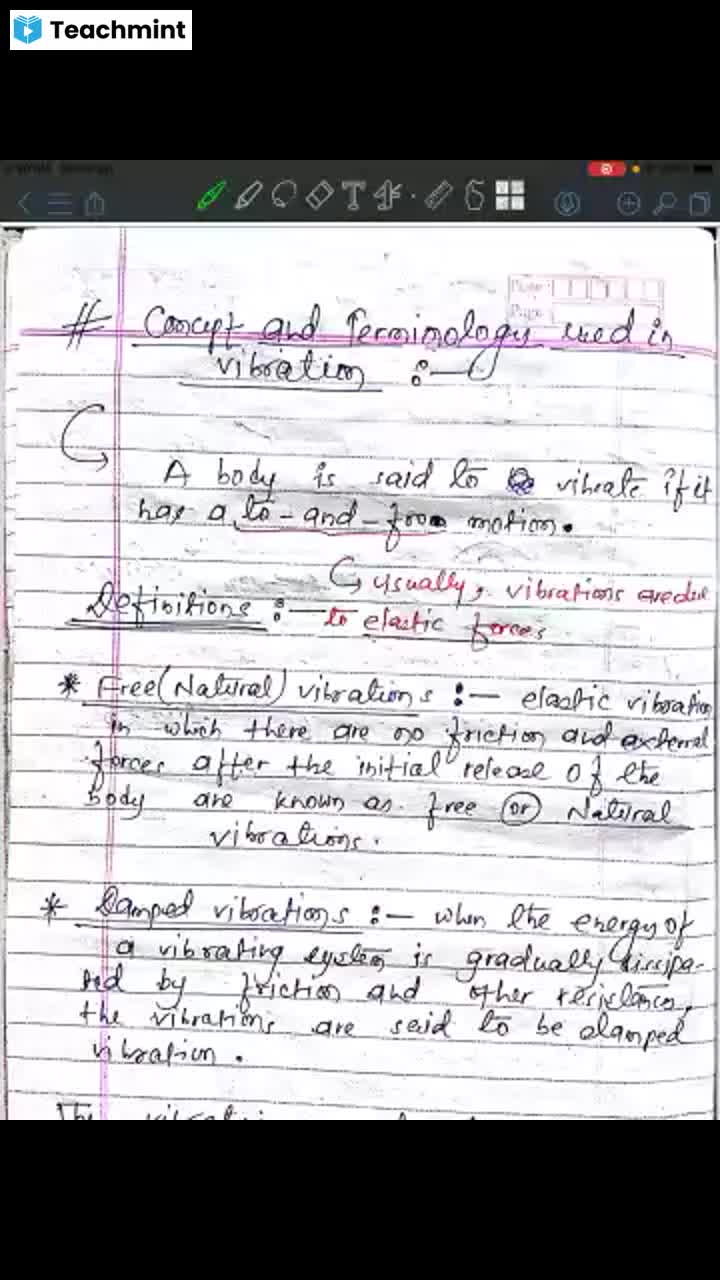 Teachmint
Page:
# Concept and Terminology used in
vibration :—
A body is said to vibrate if it
has a to-and-from motion.
↳ usually, vibrations are due
Definitions :— to elastic forces
* Free (Natural) vibrations :— elastic vibration
in which there are no friction and external
forces after the initial release of the
body are known as free (or) Natural
vibrations.
* Damped vibrations :— when the energy of
a vibrating system is gradually dissipa-
ted by friction and other resistance,
the vibrations are said to be damped
vibration.
The